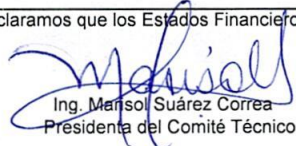 claramos que los Estados Financiero
Marisol
Ing. Marisol Suárez Correa
Presidenta del Comité Técnico